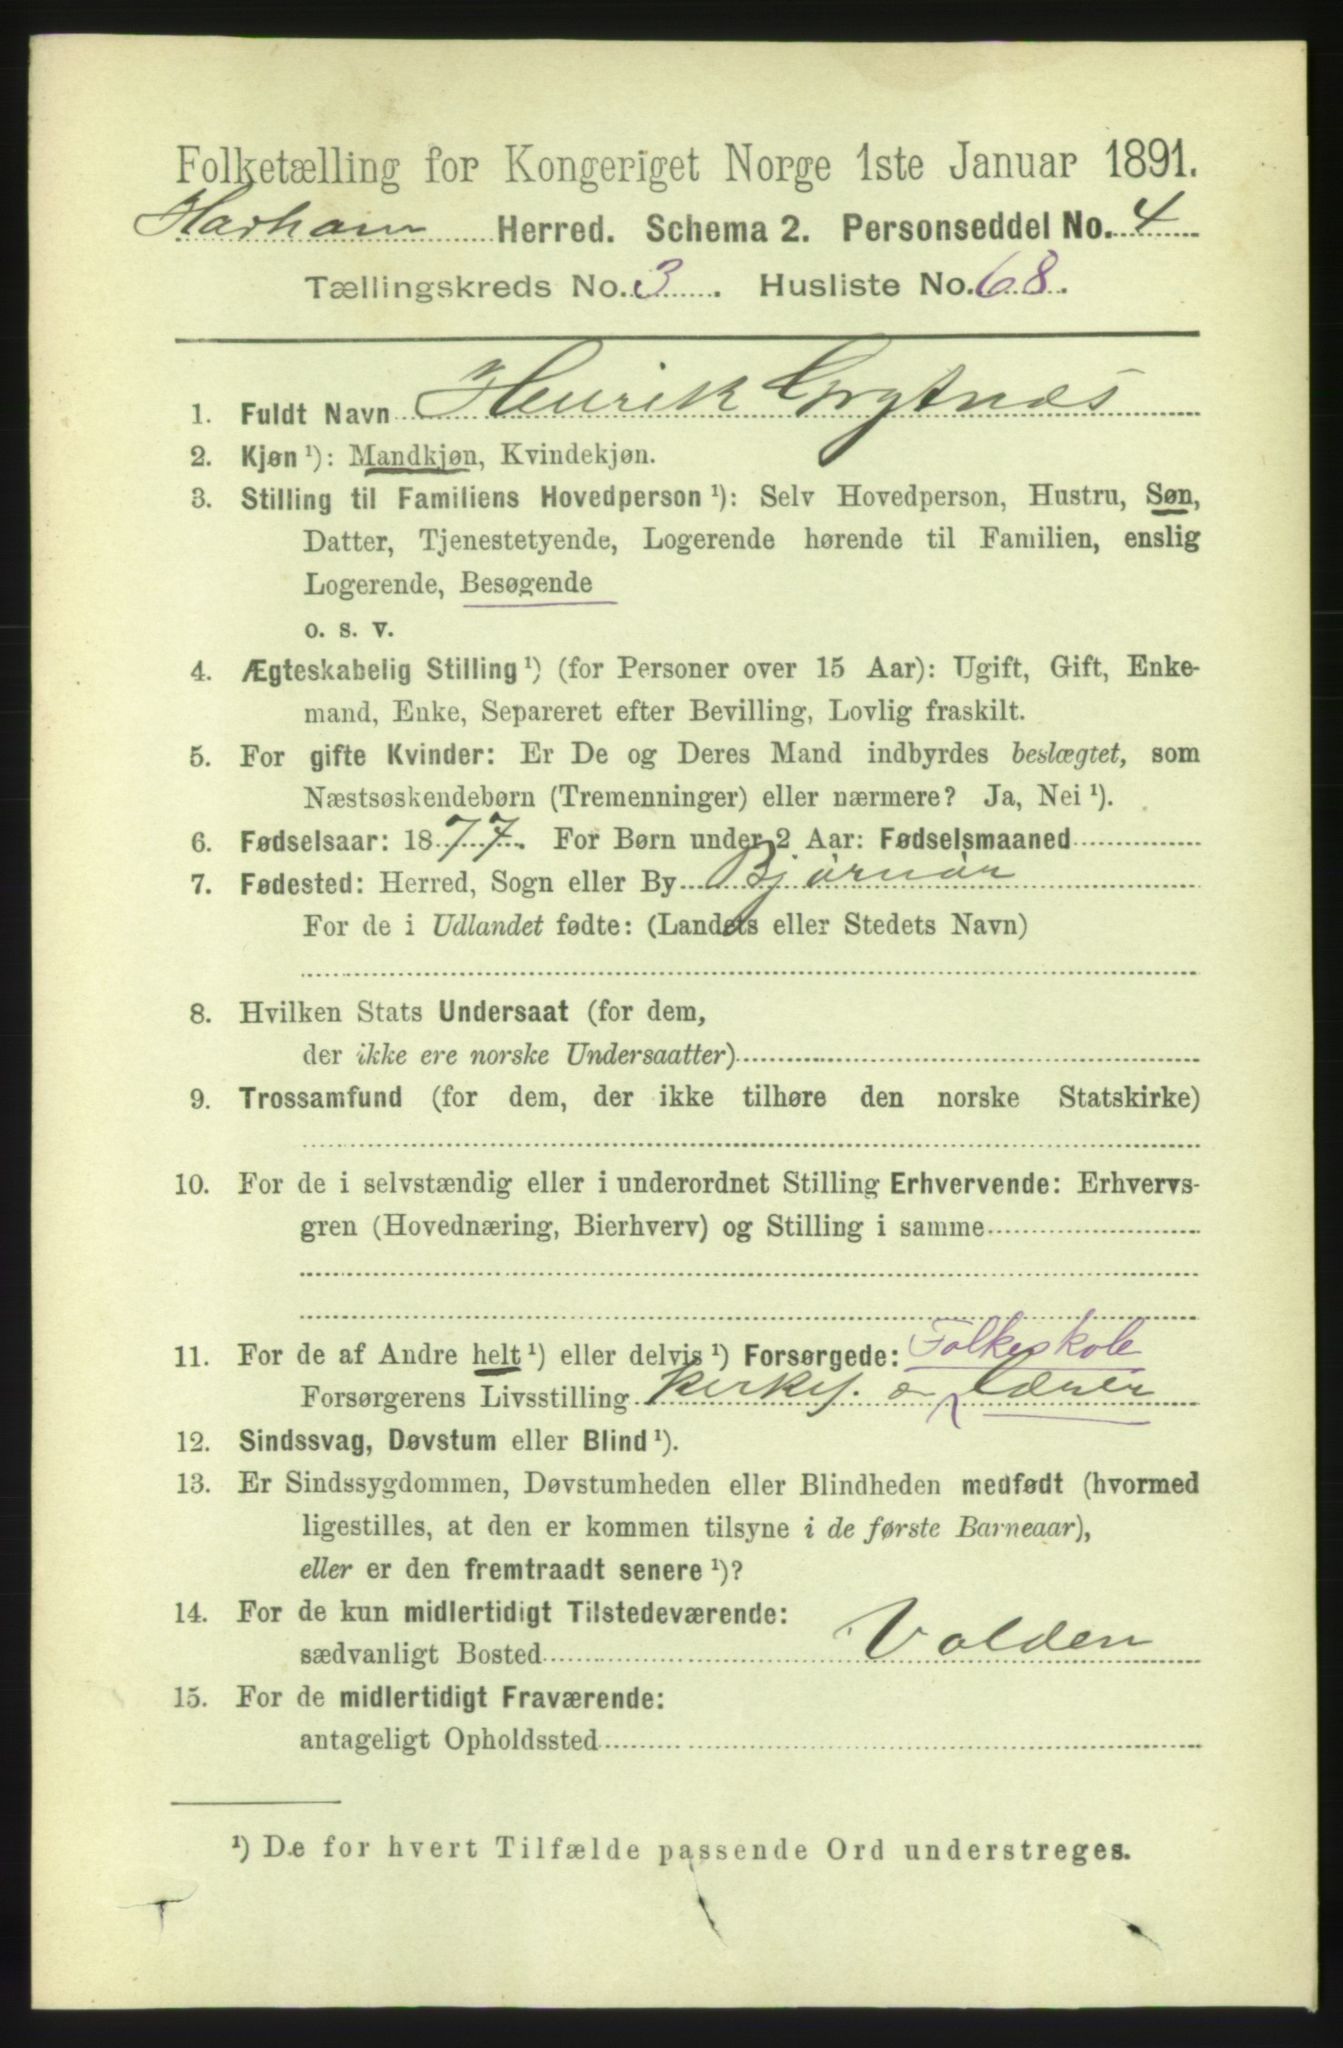 Folketælling for Kongeriget Norge 1ste Januar 1891.
Harham Herred. Schema 2. Personseddel No. 4
Tællingskreds No. 3. Husliste No. 68.
1. Fuldt Navn Henrik Grytnæs
2. Kjøn ¹): Mandkjøn, Kvindekjøn.
3. Stilling til Familiens Hovedperson ¹): Selv Hovedperson, Hustru, Søn,
Datter, Tjenestetyende, Logerende hørende til Familien, enslig
Logerende, Besøgende
o. s. v.
4. Ægteskabelig Stilling ¹) (for Personer over 15 Aar): Ugift, Gift, Enke-
mand, Enke, Separeret efter Bevilling, Lovlig fraskilt.
5. For gifte Kvinder: Er De og Deres Mand indbyrdes beslægtet, som
Næstsøskendebørn (Tremenninger) eller nærmere? Ja, Nei ¹).
6. Fødselsaar: 1877. For Børn under 2 Aar: Fødselsmaaned
7. Fødested: Herred, Sogn eller By Bjørnør
For de i Udlandet fødte: (Landets eller Stedets Navn)
8. Hvilken Stats Undersaat (for dem,
der ikke ere norske Undersaatter)
9. Trossamfund (for dem, der ikke tilhøre den norske Statskirke)
10. For de i selvstændig eller i underordnet Stilling Erhvervende: Erhvervs-
gren (Hovednæring, Bierhverv) og Stilling i samme
Folkeskole
11. For de af Andre helt ¹) eller delvis ¹) Forsørgede:
Forsørgerens Livsstilling Kirkes. Lærer
12. Sindssvag, Døvstum eller Blind ¹).
13. Er Sindssygdommen, Døvstumheden eller Blindheden medfødt (hvormed
ligestilles, at den er kommen tilsyne i de første Barneaar),
eller er den fremtraadt senere ¹)?
14. For de kun midlertidigt Tilstedeværende:
sædvanligt Bosted Volden
15. For de midlertidigt Fraværende:
antageligt Opholdssted
¹) De for hvert Tilfælde passende Ord understreges.